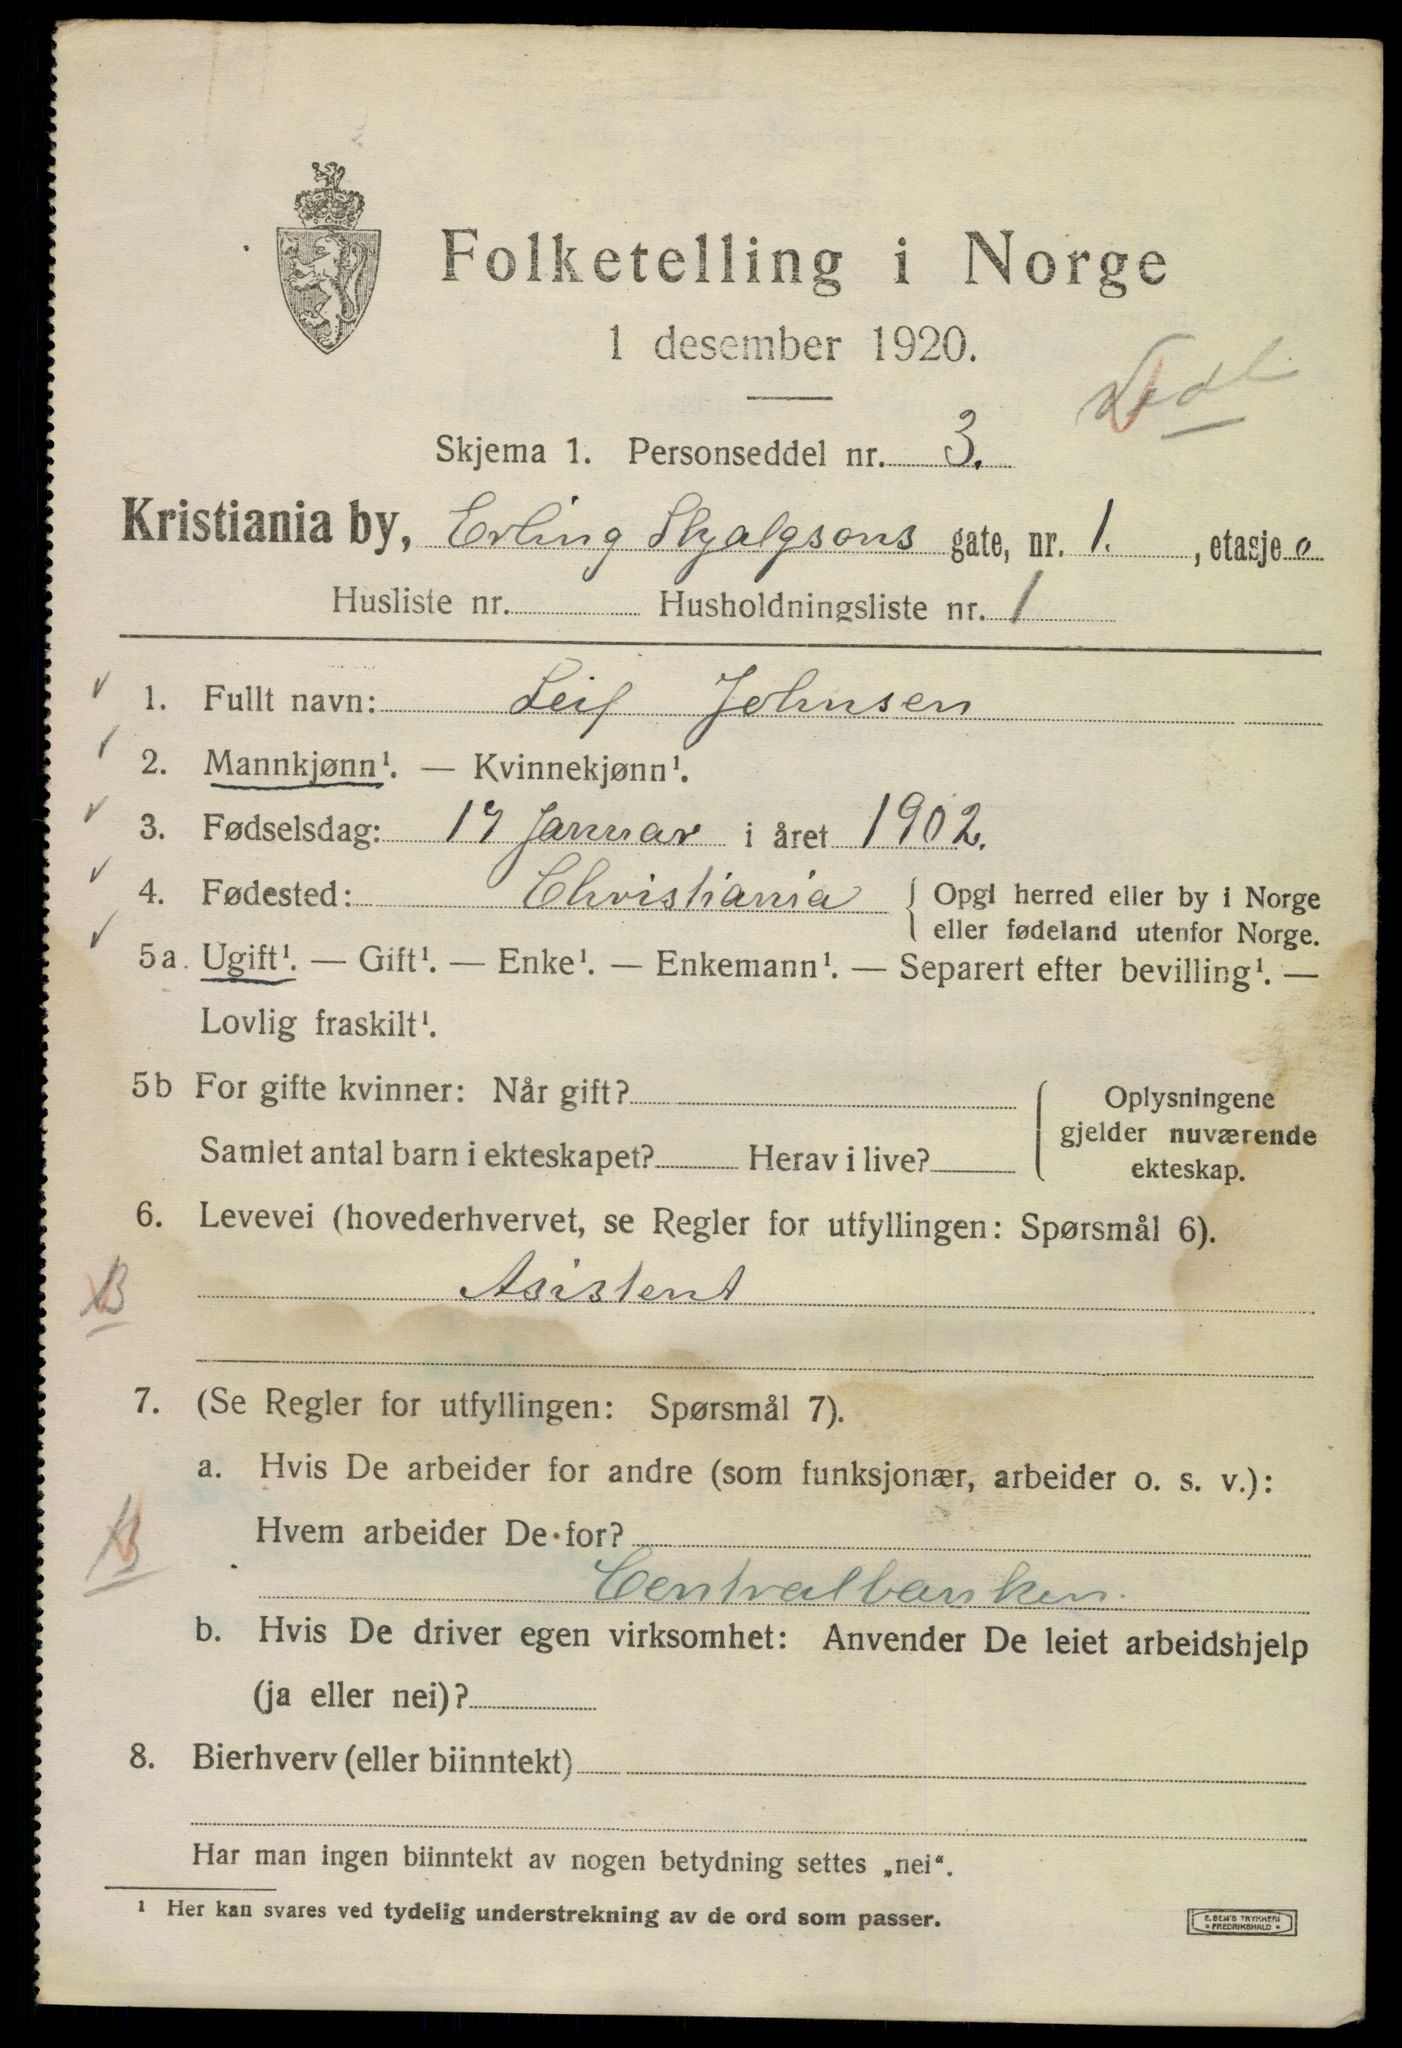 Folketelling i Norge
1 desember 1920.
Skjema 1. Personseddel nr. 3.
Kristiania by, Erling Skjalgsons gate, nr. 1. , etasje 0
Husliste nr. Husholdningsliste nr. 1
1. Fullt navn: Leif Johnsen
2. Mannkjønn¹. — Kvinnekjønn¹.
3. Fødselsdag: 17 Januar i året 1902.
4. Fødested: Christiania { Opgi herred eller by i Norge
eller fødeland utenfor Norge.
5a. Ugift¹. — Gift¹. — Enke¹. — Enkemann¹. — Separert efter bevilling¹. —
Lovlig fraskilt¹.
5b For gifte kvinner: Når gift?
Samlet antal barn i ekteskapet? Herav i live?
Oplysningene
gjelder nuværende
ekteskap.
6. Levevei (hovederhvervet, se Regler for utfyllingen: Spørsmål 6).
B Asistent
7. (Se Regler for utfyllingen: Spørsmål 7).
a. Hvis De arbeider for andre (som funksjonær, arbeider o. s. v.):
Hvem arbeider De for?
Centralbanken.
b. Hvis De driver egen virksomhet: Anvender De leiet arbeidshjelp
(ja eller nei)?
8. Bierhverv (eller biinntekt)
Har man ingen biinntekt av nogen betydning settes „nei“.
¹ Her kan svares ved tydelig understrekning av de ord som passer.
E. SEM'S TRYKKERI
• FREDRIKSHALD •